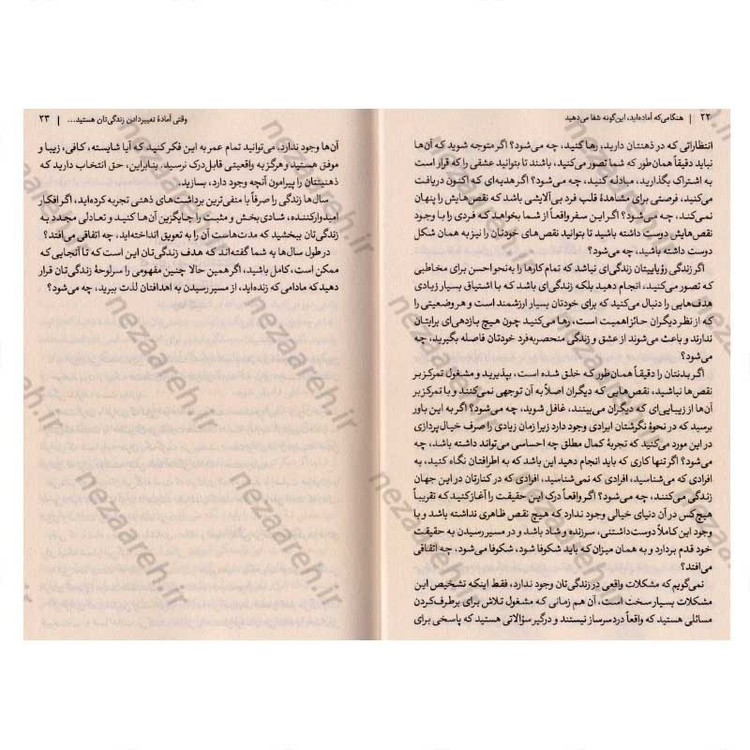 ۲۲ | هنگامی‌که آماده‌اید، این‌گونه شفا می‌دهید
انتظاراتی که در ذهنتان دارید، رها کنید، چه می‌شود؟ اگر متوجه شوید که آن‌ها
نباید دقیقاً همان‌طور که شما تصور می‌کنید، باشند تا بتوانید عشقی را که قرار است
به اشتراک بگذارید، مبادله کنید، چه می‌شود؟ اگر هدیه‌ای که اکنون دریافت
می‌کنید، فرصتی برای مشاهدهٔ قلب فرد بی‌آلایشی باشد که نقص‌هایش را پنهان
نمی‌کند، چه می‌شود؟ اگر این سفر واقعاً از شما بخواهد که فردی را با وجود
نقص‌هایش دوست داشته باشید تا بتوانید نقص‌های خودتان را نیز به همان شکل
دوست داشته باشید، چه می‌شود؟
اگر زندگی رؤیاییتان زندگی‌ای نباشد که تمام کارها را به‌نحواحسن برای مخاطبی
که تصور می‌کنید، انجام دهید بلکه زندگی‌ای باشد که با اشتیاق بسیار زیادی
هدف‌هایی را دنبال می‌کنید که برای خودتان بسیار ارزشمند است و هر وضعیتی را
که از نظر دیگران حائز اهمیت است، رها می‌کنید چون هیچ بازدهی‌ای برایتان
ندارند و باعث می‌شوند از عشق و زندگی منحصربه‌فرد خودتان فاصله بگیرید، چه
می‌شود؟
اگر بدنتان را دقیقاً همان‌طور که خلق شده است، بپذیرید و مشغول تمرکز بر
نقص‌ها نباشید، نقص‌هایی که دیگران اصلاً به آن توجهی نمی‌کنند و با تمرکز بر
آن‌ها از زیبایی‌ای که دیگران می‌بینند، غافل شوید، چه می‌شود؟ اگر به این باور
برسید که در نحوهٔ نگرشتان ایرادی وجود دارد زیرا زمان زیادی را صرف خیال‌پردازی
در این مورد می‌کنید که تجربهٔ کمال مطلق چه احساسی می‌تواند داشته باشد، چه
می‌شود؟ اگر تنها کاری که باید انجام دهید این باشد که به اطرافتان نگاه کنید، به
افرادی که می‌شناسید، افرادی که نمی‌شناسید، افرادی که در کنارتان در این جهان
زندگی می‌کنند، چه می‌شود؟ اگر واقعاً درک این حقیقت را آغاز کنید که تقریباً
هیچ‌کس در آن دنیای خیالی وجود ندارد که هیچ نقص ظاهری نداشته باشد و با
وجود این کاملاً دوست‌داشتنی، سرزنده و شاد باشد و در مسیر رسیدن به حقیقت
خود قدم بردارد و به همان میزان که باید شکوفا شود، شکوفا می‌شود، چه اتفاقی
می‌افتد؟
نمی‌گویم که مشکلات واقعی در زندگی‌تان وجود ندارد، فقط اینکه تشخیص این
مشکلات بسیار سخت است، آن هم زمانی که مشغول تلاش برای برطرف‌کردن
مسائلی هستید که واقعاً دردسرساز نیستند و درگیر سؤالاتی هستید که پاسخی برای
وقتی آمادهٔ تغییردادن زندگی‌تان هستید... | ۲۳
آن‌ها وجود ندارد، می‌توانید تمام عمر به این فکر کنید که آیا شایسته، کافی، زیبا و
موفق هستید و هرگز به واقعیتی قابل‌درک نرسید. بنابراین، حق انتخاب دارید که
ذهنیتتان را پیرامون آنچه وجود دارد، بسازید.
سال‌ها زندگی را صرفاً با منفی‌ترین برداشت‌های ذهنی تجربه کرده‌اید، اگر افکار
امیدوارکننده، شادی‌بخش و مثبت را جایگزین آن‌ها کنید و تعادلی مجدد به
زندگی‌تان ببخشید که مدت‌هاست آن را به تعویق انداخته‌اید، چه اتفاقی می‌افتد؟
در طول سال‌ها به شما گفته‌اند که هدف زندگی‌تان این است که تا آنجایی که
ممکن است، کامل باشید، اگر همین حالا چنین مفهومی را سرلوحهٔ زندگی‌تان قرار
دهید که مادامی که زنده‌اید، از مسیر رسیدن به اهدافتان لذت ببرید، چه می‌شود؟
nezaareh.ir
nezaareh.ir
nezaareh.ir
nezaareh.ir
nezaareh.ir
nezaareh.ir
nezaareh.ir
nezaareh.ir